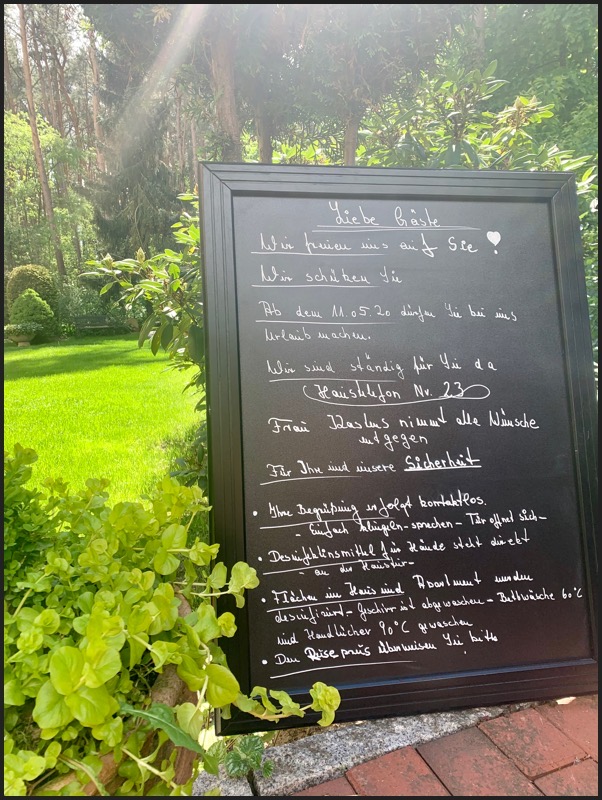 Liebe Gäste
Wir freuen uns auf Sie
Wir schützen Sie
Ab dem 11.05.20 dürfen Sie bei uns
Urlaub machen.
Wir sind ständig für Sie da
Haustelefon Nr. 23
Frau nimmt alle Wünsche
entgegen
Für Ihre und unsere Sicherheit
• Ihre Begrüßung erfolgt kontaktlos.
- Einfach klingeln-sprechen- Tür öffnet sich-
• Desinfektionsmittel für Hände steht direkt
- an der Haustür-
• Flächen im Haus und Apartment werden
desinfiziert- Geschirr ist abgewaschen- Bettwäsche 60°C
und Handtücher 90°C gewaschen
• Den Reisepreis überweisen Sie bitte